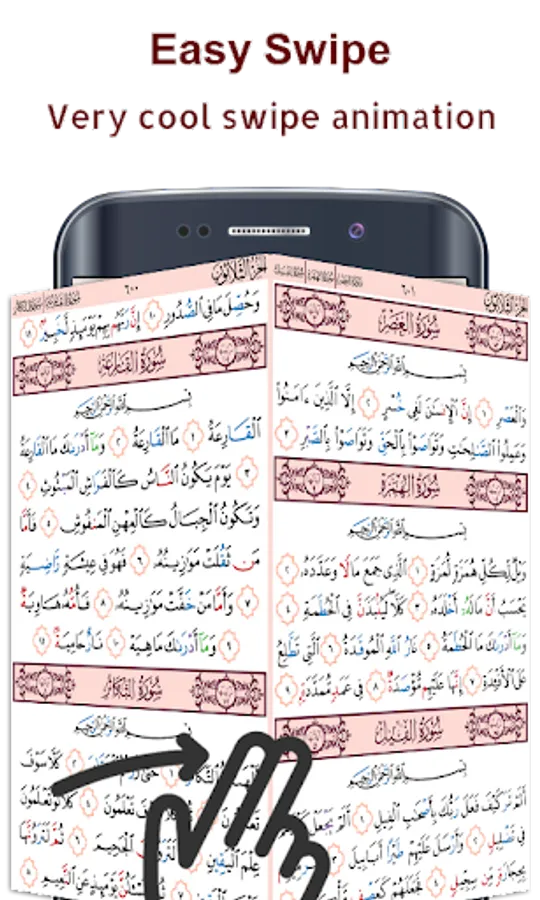 Easy Swipe
Very cool swipe animation
الجزء الثلاثون
٦٠٠
وَحُصِّلَ مَا فِي الصُّدُورِ ١٠ إِنَّ رَبَّهُم بِهِمْ يَوْمَئِذٍ لَّخَبِيرٌ ١١
سُورَةُ القَارِعَةِ
بِسْمِ اللَّهِ الرَّحْمَٰنِ الرَّحِيمِ
الْقَارِعَةُ ١ مَا الْقَارِعَةُ ٢ وَمَا أَدْرَىٰكَ مَا الْقَارِعَةُ
٣ يَوْمَ يَكُونُ النَّاسُ كَالْفَرَاشِ الْمَبْثُوثِ ٤
وَتَكُونُ الْجِبَالُ كَالْعِهْنِ الْمَنفُوشِ ٥ فَأَمَّا
مَن ثَقُلَتْ مَوَٰزِينُهُ ٦ فَهُوَ فِي عِيشَةٍ رَّاضِيَةٍ
٧ وَأَمَّا مَنْ خَفَّتْ مَوَٰزِينُهُ ٨ فَأُمُّهُ هَاوِيَةٌ
٩ وَمَا أَدْرَىٰكَ مَا هِيَهْ ١٠ نَارٌ حَامِيَةٌ ١١
سُورَةُ التَّكَاثُرِ
بِسْمِ اللَّهِ الرَّحْمَٰنِ الرَّحِيمِ
١ حَتَّىٰ ٢ كَلَّا سَوْفَ
تَعْلَمُونَ ٤ كَلَّا لَوْ تَعْلَمُونَ
عِلْمَ الْيَقِينِ الْجَحِيمَ ٦ ثُمَّ لَتَرَوُنَّهَا
يَوْمَئِذٍ عَنِ النَّعِيمِ ٨
الجزء الثلاثون
٦٠١
سُورَةُ العَصْرِ
بِسْمِ اللَّهِ الرَّحْمَٰنِ الرَّحِيمِ
وَالْعَصْرِ ١ إِنَّ الْإِنسَٰنَ لَفِي خُسْرٍ ٢ إِلَّا الَّذِينَ ءَامَنُوا
وَعَمِلُوا الصَّٰلِحَٰتِ وَتَوَاصَوْا بِالْحَقِّ وَتَوَاصَوْا بِالصَّبْرِ ٣
سُورَةُ الهُمَزَةِ
بِسْمِ اللَّهِ الرَّحْمَٰنِ الرَّحِيمِ
وَيْلٌ لِّكُلِّ هُمَزَةٍ لُّمَزَةٍ ١ الَّذِي جَمَعَ مَالًا وَعَدَّدَهُ ٢
يَحْسَبُ أَنَّ مَالَهُ أَخْلَدَهُ ٣ كَلَّا لَيُنبَذَنَّ فِي الْحُطَمَةِ ٤
وَمَا أَدْرَىٰكَ مَا الْحُطَمَةُ ٥ نَارُ اللَّهِ الْمُوقَدَةُ ٦ الَّتِي تَطَّلِعُ
عَلَى الْأَفْـِٔدَةِ ٧ إِنَّهَا عَلَيْهِم مُّؤْصَدَةٌ ٨ فِي عَمَدٍ مُّمَدَّدَةٍ ٩
سُورَةُ الفِيلِ
بِسْمِ اللَّهِ الرَّحْمَٰنِ الرَّحِيمِ
أَلَمْ تَرَ كَيْفَ فَعَلَ رَبُّكَ بِأَصْحَٰبِ الْفِيلِ ١ أَلَمْ يَجْعَلْ
فِي تَضْلِيلٍ ٢ وَأَرْسَلَ عَلَيْهِمْ طَيْرًا أَبَابِيلَ
بِحِجَارَةٍ مِّن سِجِّيلٍ ٤ فَجَعَلَهُمْ كَعَصْفٍ